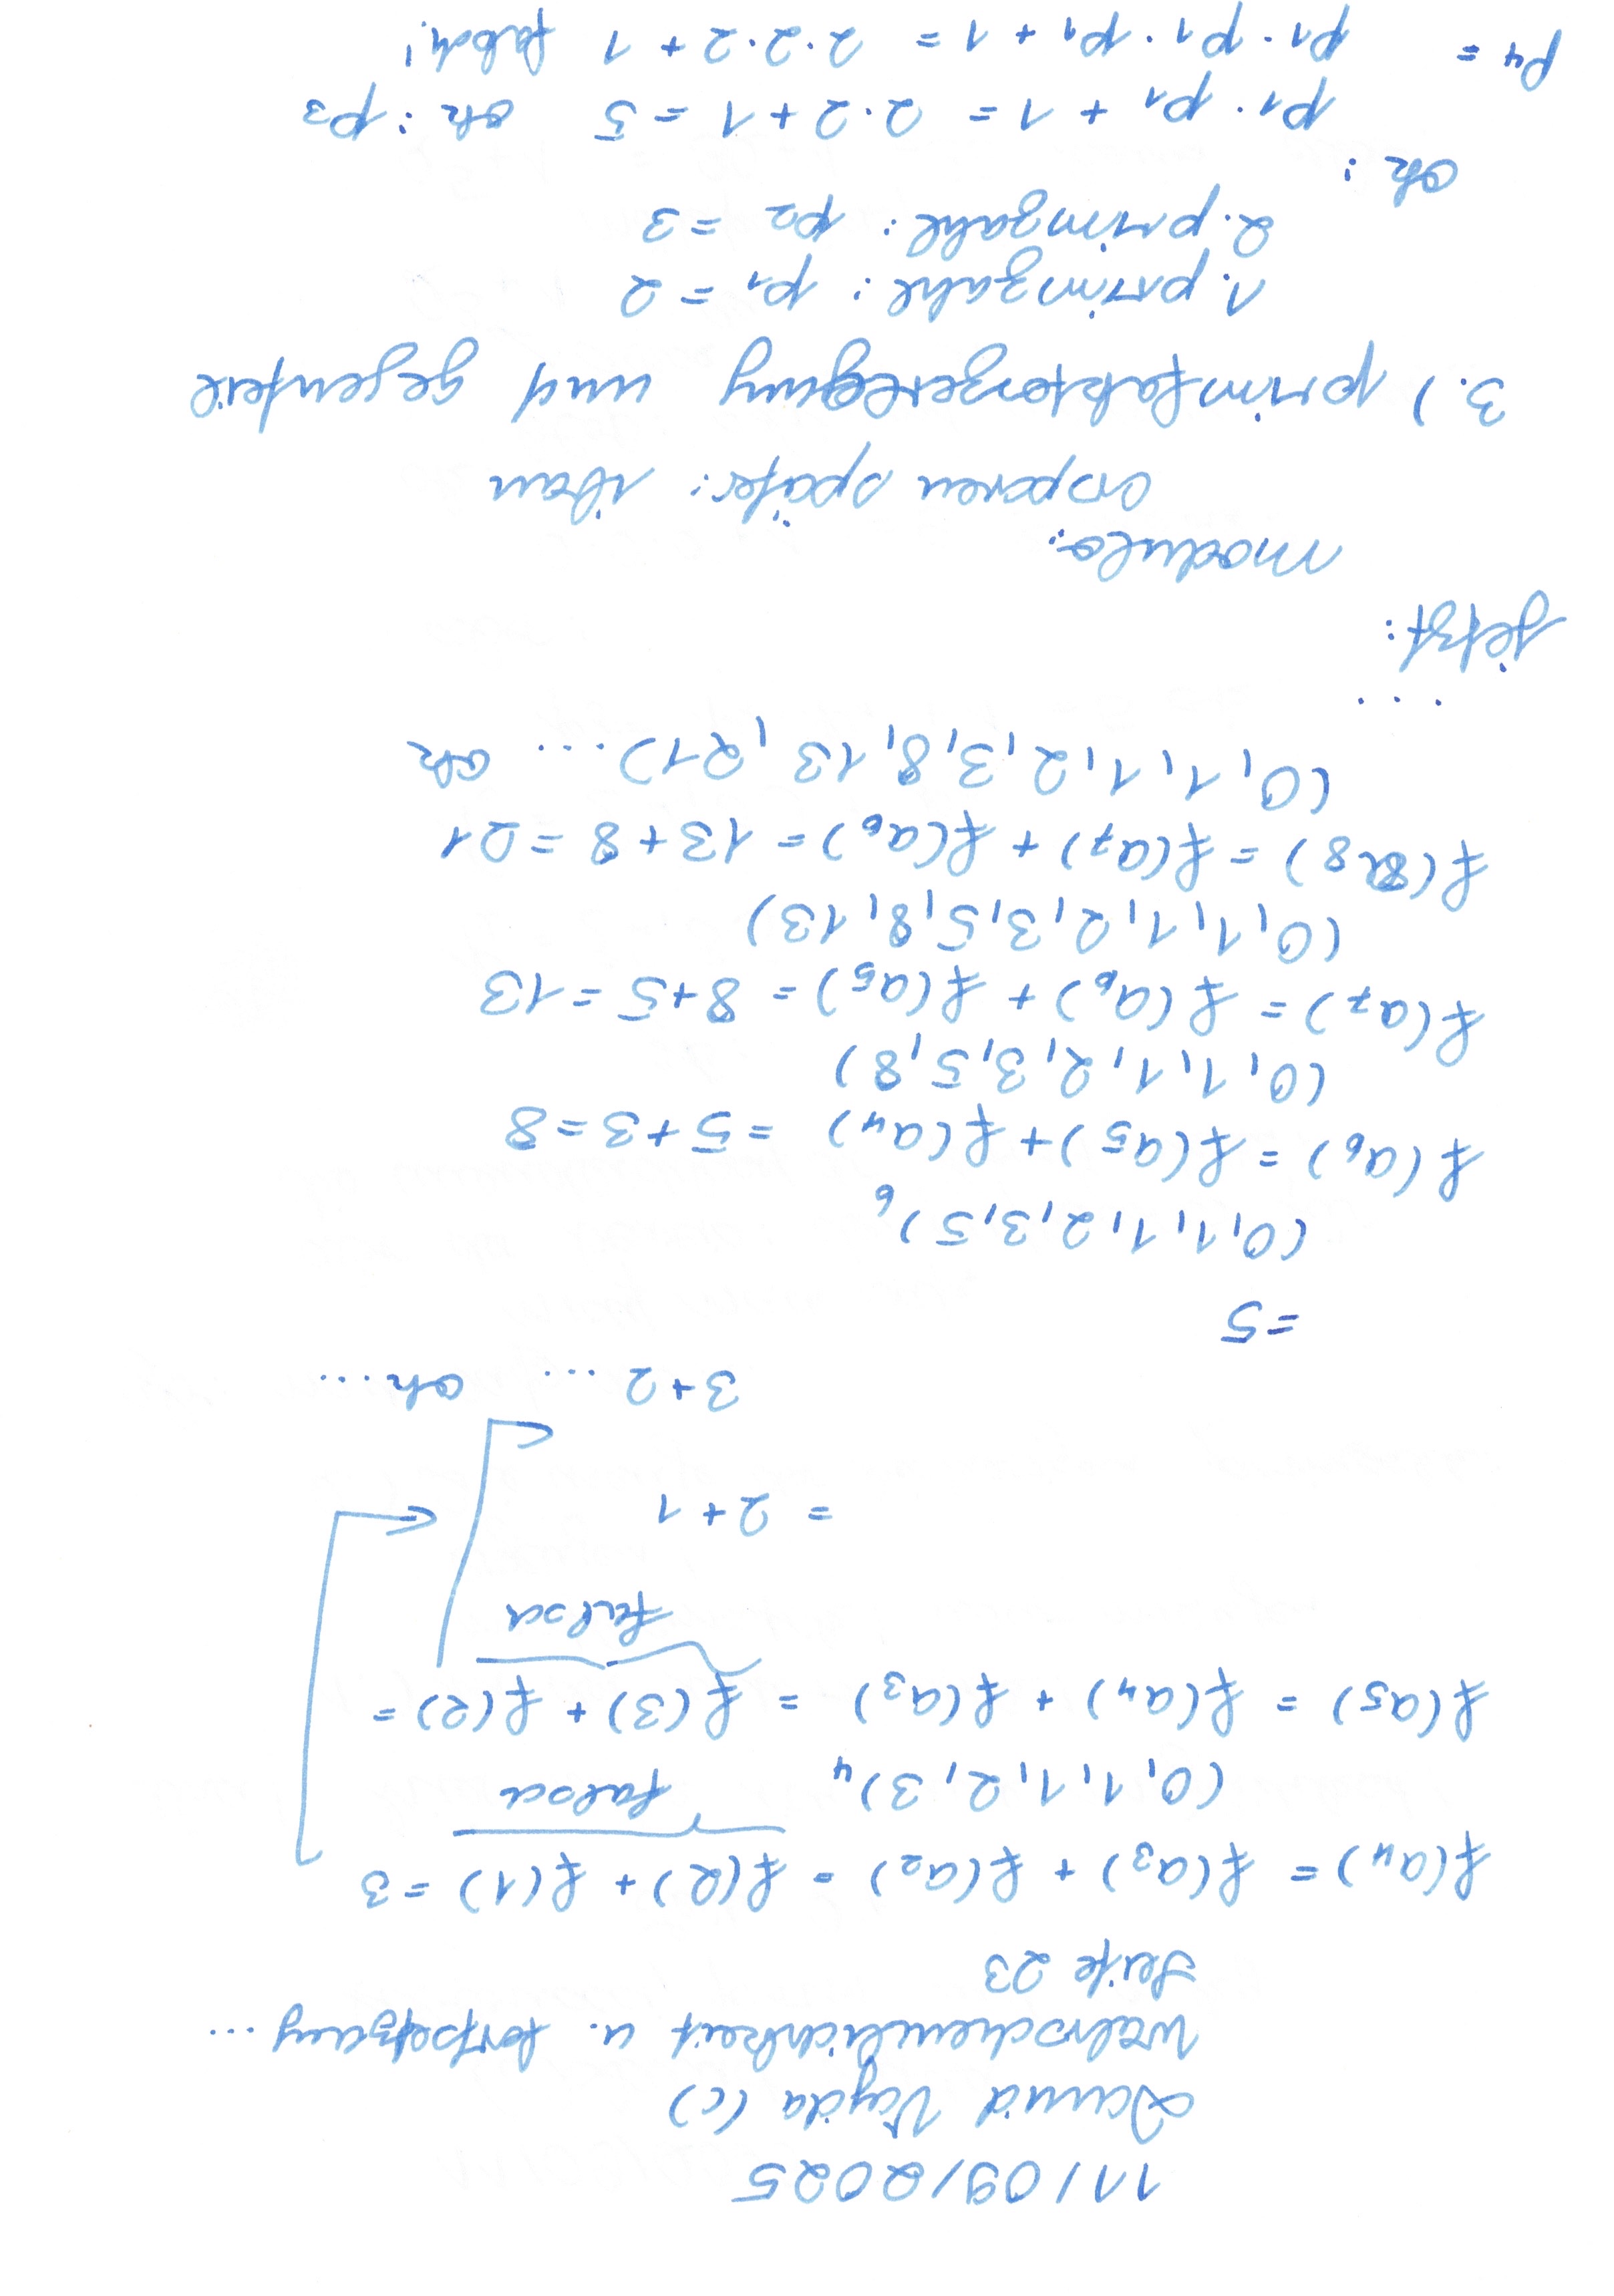 11/09/2025
David Vajda (c)
Wahrscheinlichkeit u. fortsetzung ...
Seite 23
f(a4) = f(a3) + f(a2) = f(2) + f(1) = 3
falsch
(0,1,1,2,3)4
f(a5) = f(a4) + f(a3) = f(3) + f(2) =
falsch
= 2+1
3+2 ... ok ...
=5
(0,1,1,1,2,3,5)6
f(a6) = f(a5) + f(a4) = 5+3=8
(0,1,1,1,2,3,5,8)
f(a7) = f(a6) + f(a5) = 8+5=13
(0,1,1,1,2,3,5,8,13)
f(a8) = f(a7) + f(a6) = 13+8=21
(0,1,1,1,2,3,8,13,21) ... ok
...
jetzt:
modulo:
später:
3.) primfaktorzerlegung und gegenteil
1. primzahl: p1 = 2
2. primzahl: p2 = 3
ok:
p1 · p1 + 1 = 2·2+1 = 5 ok: p3
p4 = p1·p1·p1+1 = 2·2·2+1 falsch!